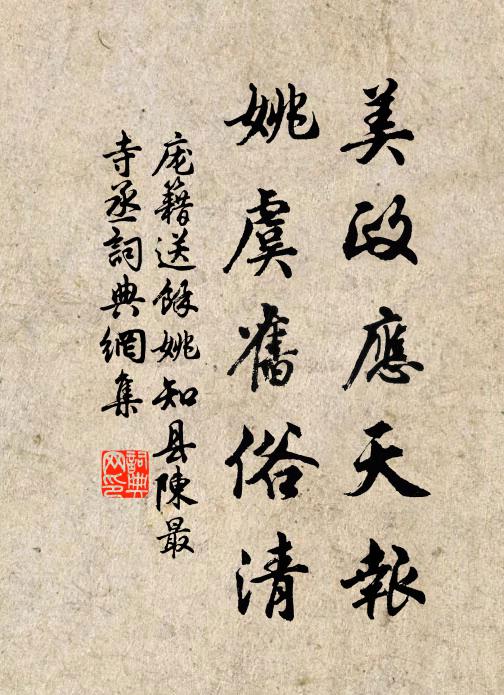 美政應天報
姚虞舊俗清
庞籍送餘姚知县陳最
寺丞詞典網集
詞典网印